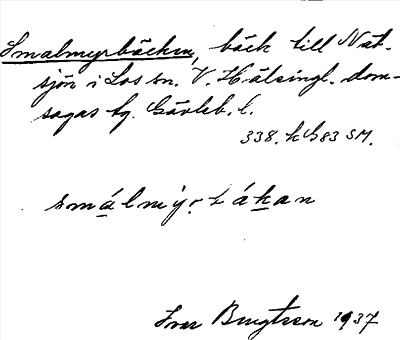 Smalmyrbäcken, bäck till Nät-
sjön i Los sn. V. Hälsingl. dom-
sagas tg. Gävleb. l.
338. h G83 SM.
smálmýrbákan
Ivar Bengtsson 1937